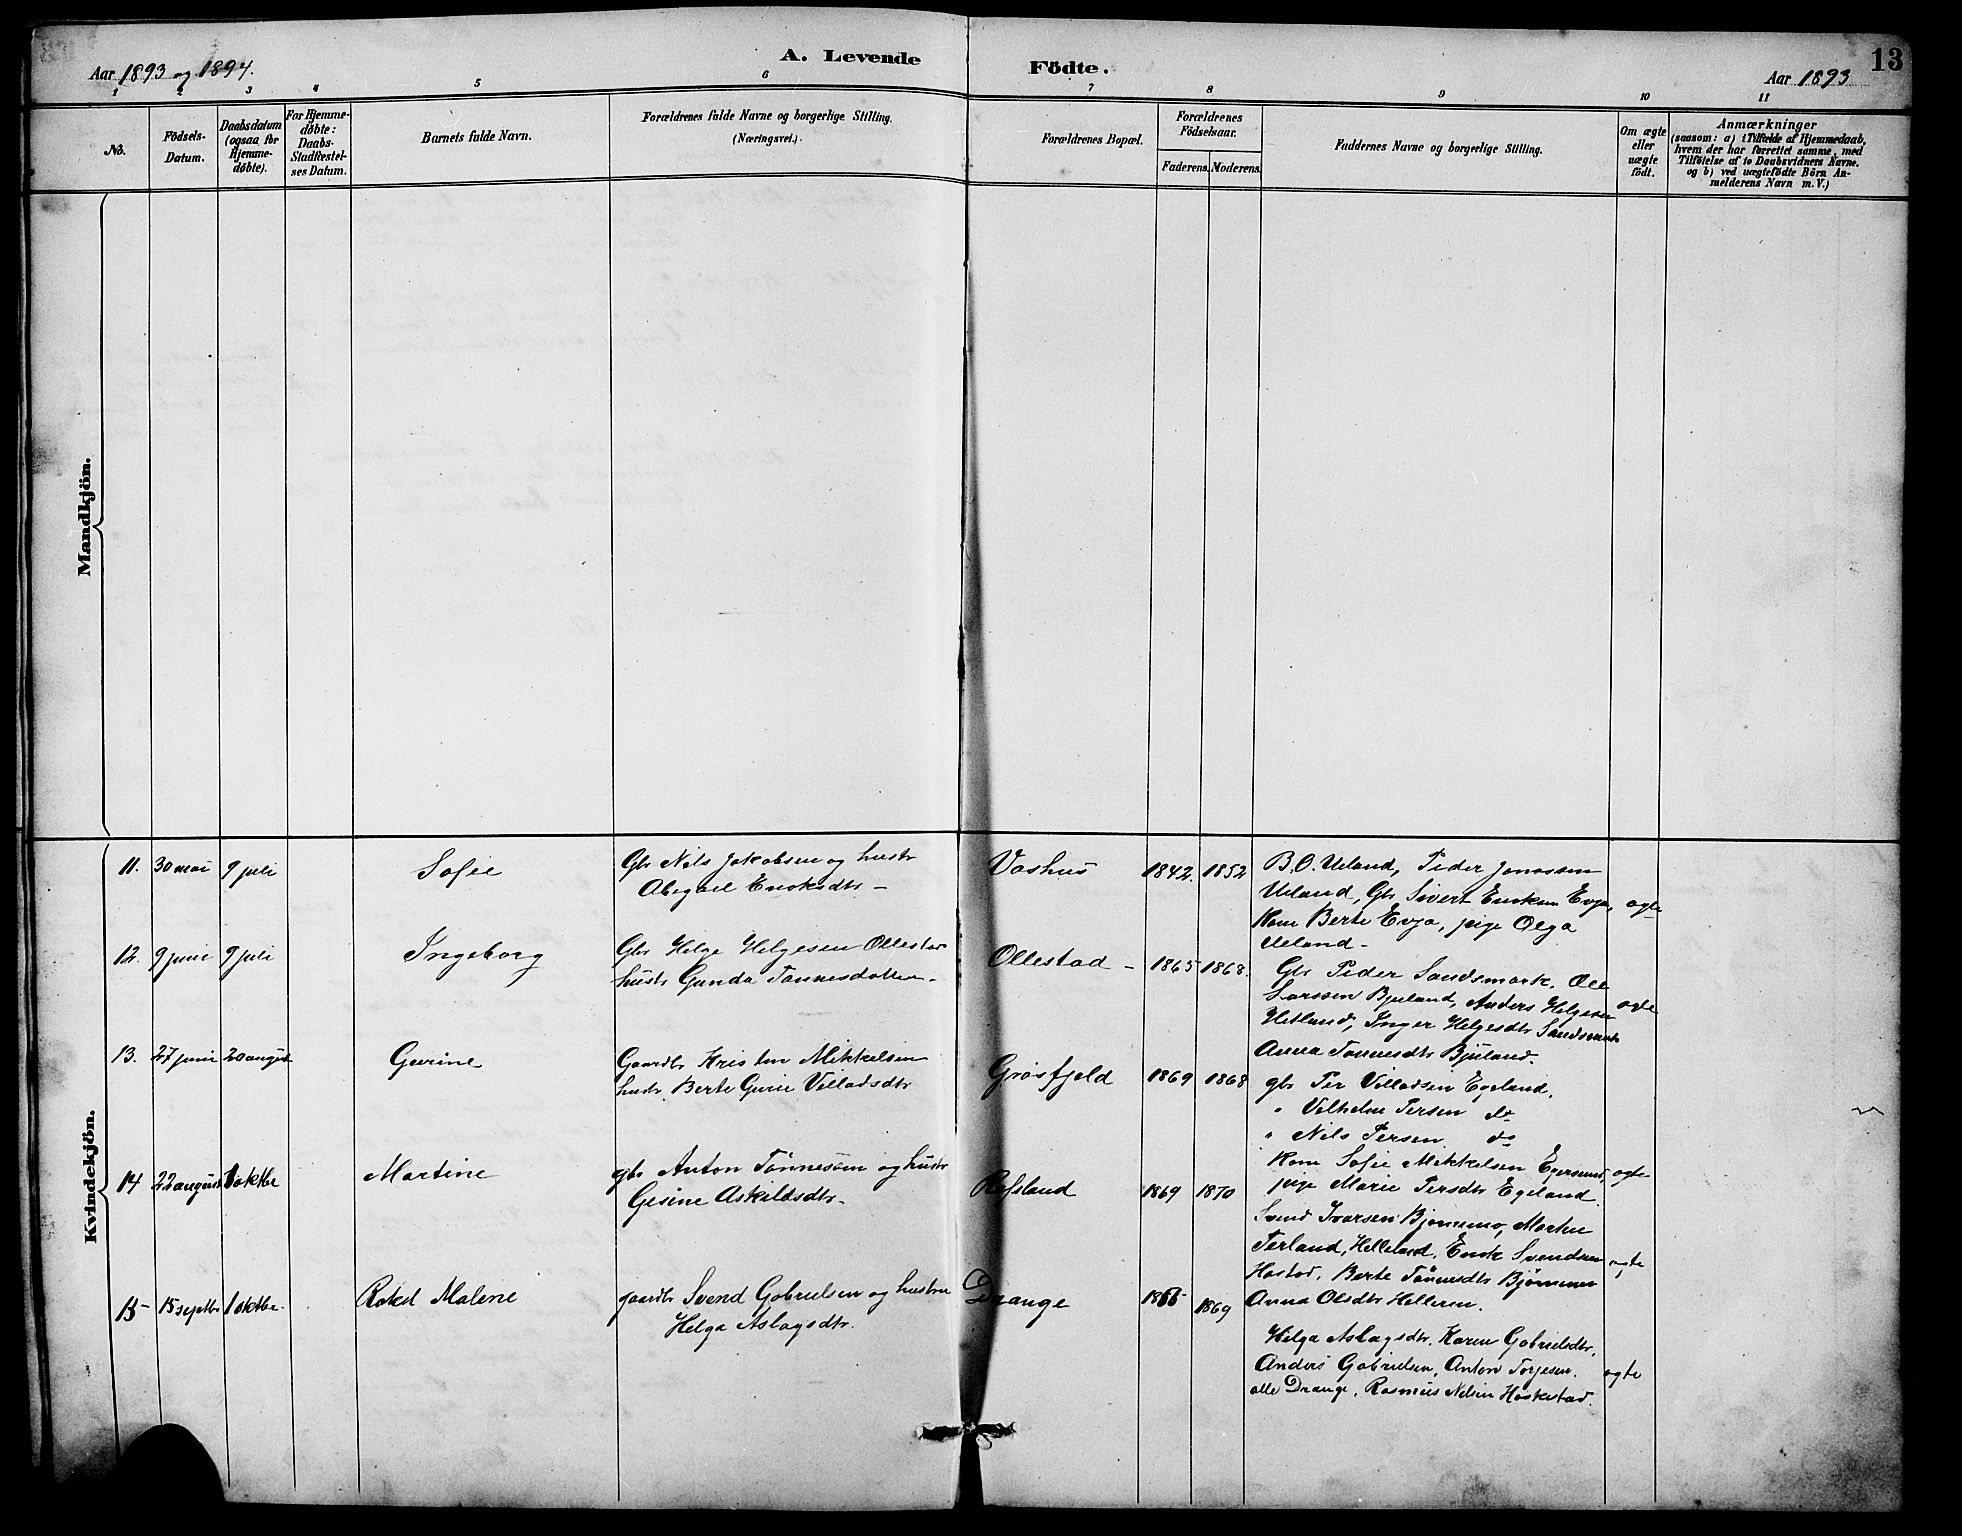 Aar 1893 og 1894.
A. Levende Födte.
Aar 1893
13
1 2 3 4 5 6 7 8 9 10 11
No.
Födsels-
Datum.
Daabsdatum
(ogsaa for
Hjemme-
døbte).
For Hjemme-
døbte:
Daabs-
Stadfæstel-
ses Datum.
Barnets fulde Navn.
Forældrenes fulde Navne og borgerlige Stilling.
(Næringsvei.)
Forældrenes Bopæl.
Forældrenes
Födselsaar.
Faderens. Moderens.
Faddernes Navne og borgerlige Stilling.
Om ægte
eller
uægte
födt.
Anmærkninger
(saasom: a) i Tilfælde af Hjemmedaab,
hvem der har forrettet samme, med
Tilføielse af to Daabsvidners Navne.
og b) ved uægtefødte Börn An-
melderens Navn m.V.)
Mandkjön.
Kvindekjön.
11. 30 mai 9 juli
Sofie
Gbr Nils Jakobsen og hustr
Abigael Enoksdtr -
Vashus
1842. 1852
B.O. Ueland, Peder Jonassen
Ueland, Gbr Sivert Enoksen Evja,
Kone Berte Evja, pige Olga
Ueland -
ægte
12. 9 juni 9 juli
Ingeborg
Gbr Helge Helgesen Ollestad
hustr Gunda Tønnesdatter -
Ollestad -
1865 1868.
Gbr Peder Sandsmark, Ole
Larssen Bjuland, Anders Helgesen
Hetland, Inger Helgesdtr Sandsmark
Anna Tønnesdtr Bjuland.
ægte
13. 27 juni 20 august
Gurine
Gaardbr Kristen Mikkelsen
hustr. Berte Gurie Villadsdtr
Grøsfjeld
1869 1868
gbr Per Villadsen Egeland.
" Vilhelm Persen do
" Nils Persen do
Kone Sofie Mikkelsen Egersund,
pige Marie Persdtr Egeland
ægte
14 22 august 1 oktbr
Martine
gbr Anton Tønnesen og hustr
Gesine Askildsdtr -
Refsland
1869 1870
Svend Ivarsen Bjønnemo, Martin
Terland, Helleland, Enok Svendsen
Berte Tønnesdtr
Anna Olsdtr Helleren.
ægte
15 - 15 septbr 1 oktbr.
Rakel Malene
gaardbr Svend Gabrielsen og hustru
Helga Aslagsdtr.
Drange
1869
Helga Aslagsdtr, Karen Gabrielsdtr,
Anders Gabrielsen, Anton Torjesen.
alle Drange, Rasmus Nilsen Haskestad.
ægte